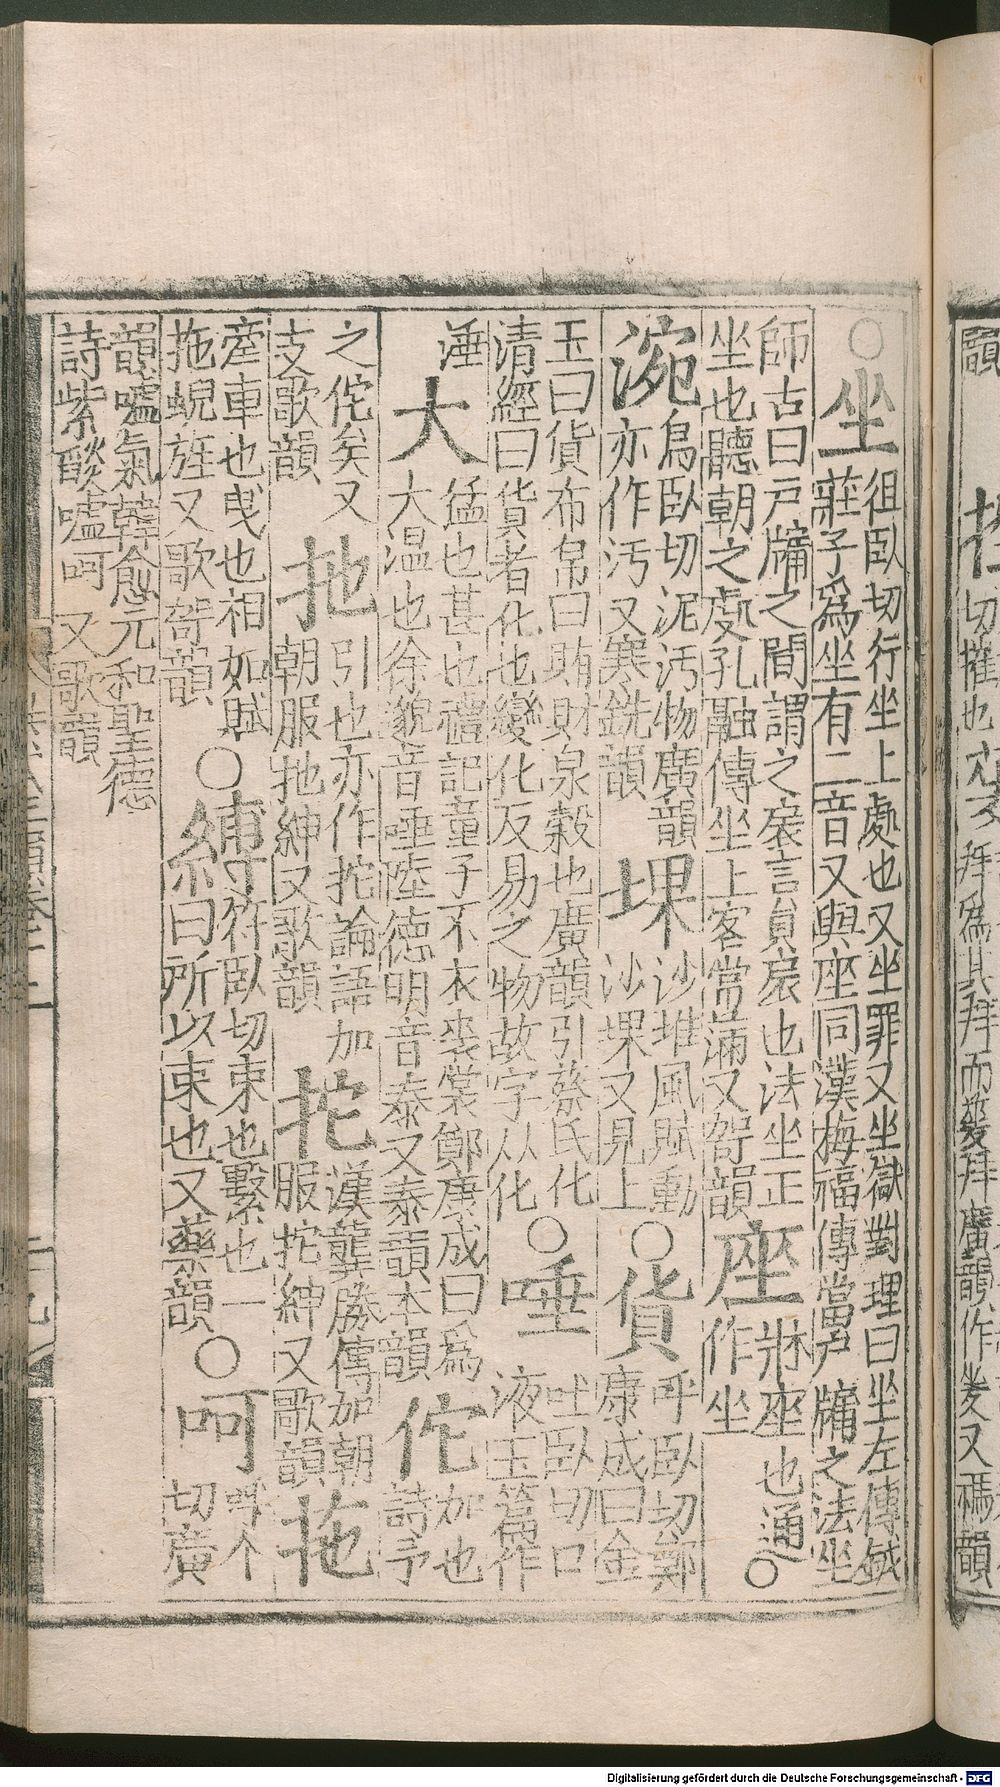 ○坐徂臥切行坐上處也又坐罪又坐獄對理曰坐左傳鍼
莊子爲坐有二音又與座同漢梅福傳當戶牖之法坐
師古曰戶牖之間謂之扆言負扆也法坐正座牀座也通○
坐也聽朝之處孔融傳坐上客常滿又哿韻作坐
涴烏臥切泥汚物廣韻堁沙堆風賦動○貨呼臥切鄭
亦作汚又寒銑韻沙堁又見上康成曰金
玉曰貨布帛曰賄財泉穀也廣韻引蔡氏化○唾吐臥切口
清經曰貨者化也變化反易之物故字从化液玉篇作
涶大猛也甚也禮記童子不衣裘裳鄭康成曰爲佗加也
大温也徐邈音唾陸德明音泰又泰韻本韻詩予
之佗矣又扡引也亦作拕論語加拕漢龔勝傳加朝拖
支歌韻朝服扡紳又歌韻服拕紳又歌韻
牽車也曵也相如賦○縛符臥切束也繫也一○呵呼个
拖蜺旌又歌哿韻曰所以束也又藥韻切廣
韻噓氣韓愈元和聖德
詩紫燄噓呵又歌韻
二十九
韻
切摧也
拜爲其拜而蓌拜廣韻作夎又禡韻
Digitalisierung gefördert durch die Deutsche Forschungsgemeinschaft - DFG